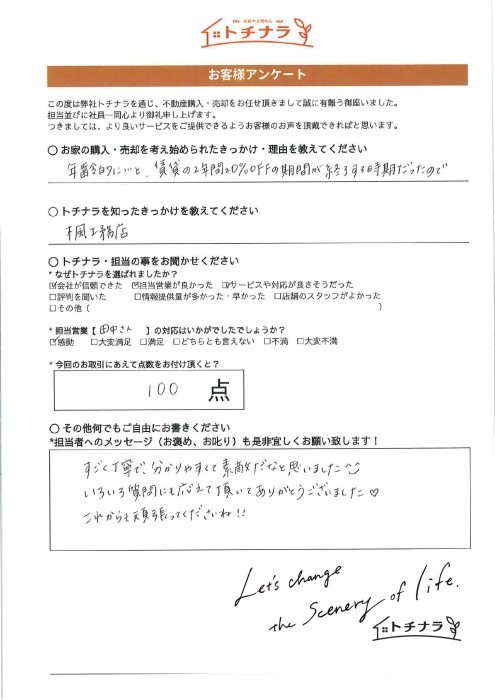 トチナラ
お客様アンケート
この度は弊社トチナラを通じ、不動産購入・売却をお任せ頂きまして誠に有難う御座いました。
担当並びに社員一同心より御礼申し上げます。
つきましては、より良いサービスをご提供できるようお客様のお声を頂戴できればと思います。
○ お家の購入・売却を考え始められたきっかけ・理由を教えてください
年齢的にいと、賃貸の2年間20%OFFの期間が終了する時期だったので
○ トチナラを知ったきっかけを教えてください
楓工務店
○ トチナラ・担当の事をお聞かせください
* なぜトチナラを選ばれましたか?
☑会社が信頼できた ☑担当営業が良かった ☑サービスや対応が良さそうだった
□評判を聞いた □情報提供量が多かった・早かった □店舗のスタッフがよかった
□その他(
* 担当営業【 田中さん 】の対応はいかがでしたでしょうか?
☑感動 □大変満足 □満足 □どちらとも言えない □不満 □大変不満
* 今回のお取引にあえて点数をお付け頂くと?
100 点
○ その他何でもご自由にお書きください
*担当者へのメッセージ(お褒め、お叱り)も是非宜しくお願い致します!
すごく丁寧で分かりやすくて素敵だなと思いました
いろいろ質問にも応えて頂いてありがとうございました♡
これからも頑張ってくださいね!!
Let's change
the Scenery of life.
トチナラ